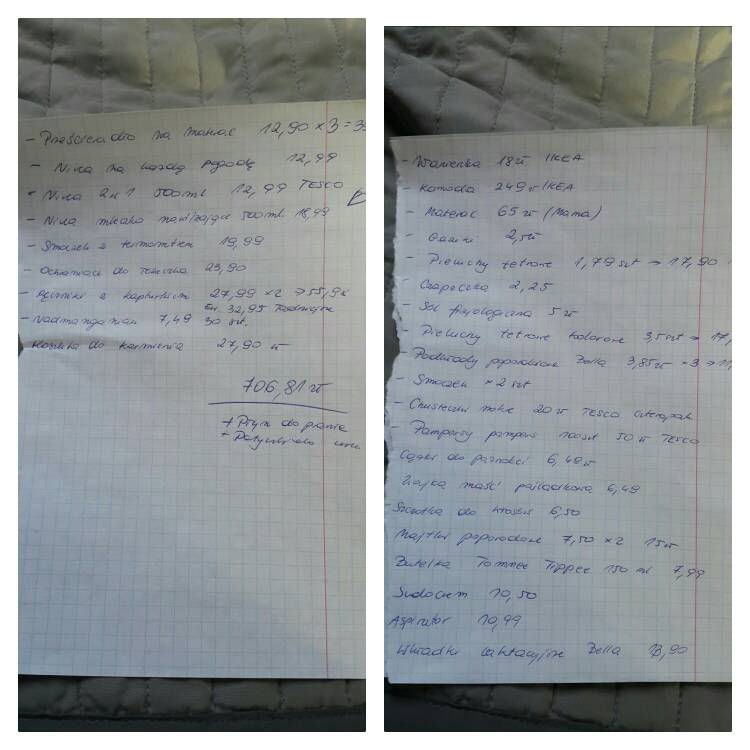 - Prześcieradło na materac 12,90 x 3 = 3
- Nivea na każdą pogodę 12,99
- Nivea 2w1 500ml 12,99 TESCO
- Nivea mleczko nawilżające 500ml 18,99
- Smoczek z termometrem 19,99
- Ochraniacz do łóżeczka 23,90
- Ręczniki z kapturkiem 27,99 x 2 → 55,98
Ew. 32,95
- Nadmanganian 7,49 30 szt.
- Koszula do karmienia 27,90 zł
706,81 zł
+ Płyn do prania
+ Patyczki do uszu
- Wanienka 18zł IKEA
- Komoda 249zł IKEA
- Materac 65 zł (Mama)
- Gaziki 2,5zł
- Pieluchy tetrowe 1,79 szt → 17,90
- Czapeczka 2,25
- Sól fizjologiczna 5 zł
- Pieluchy tetrowe kolorowe 3,5szt → 17,
- Podkłady poporodowe Bella 3,85zł × 3 → 11,
- Smoczek × 2 szt
- Chusteczki mokre 20 zł TESCO czteropak
- Pampersy pampers 100szt 50 zł TESCO
Cążki do paznokci 6,49zł
Ziajka maść pośladkowa 6,49
Szczotka do włosów 6,50
Majtki poporodowe 7,50 × 2 15zł
Butelka Tommee Tippee 150 ml 7,99
Sudocrem 10,50
Aspirator 10,99
Wkładki laktacyjne Bella 13,90